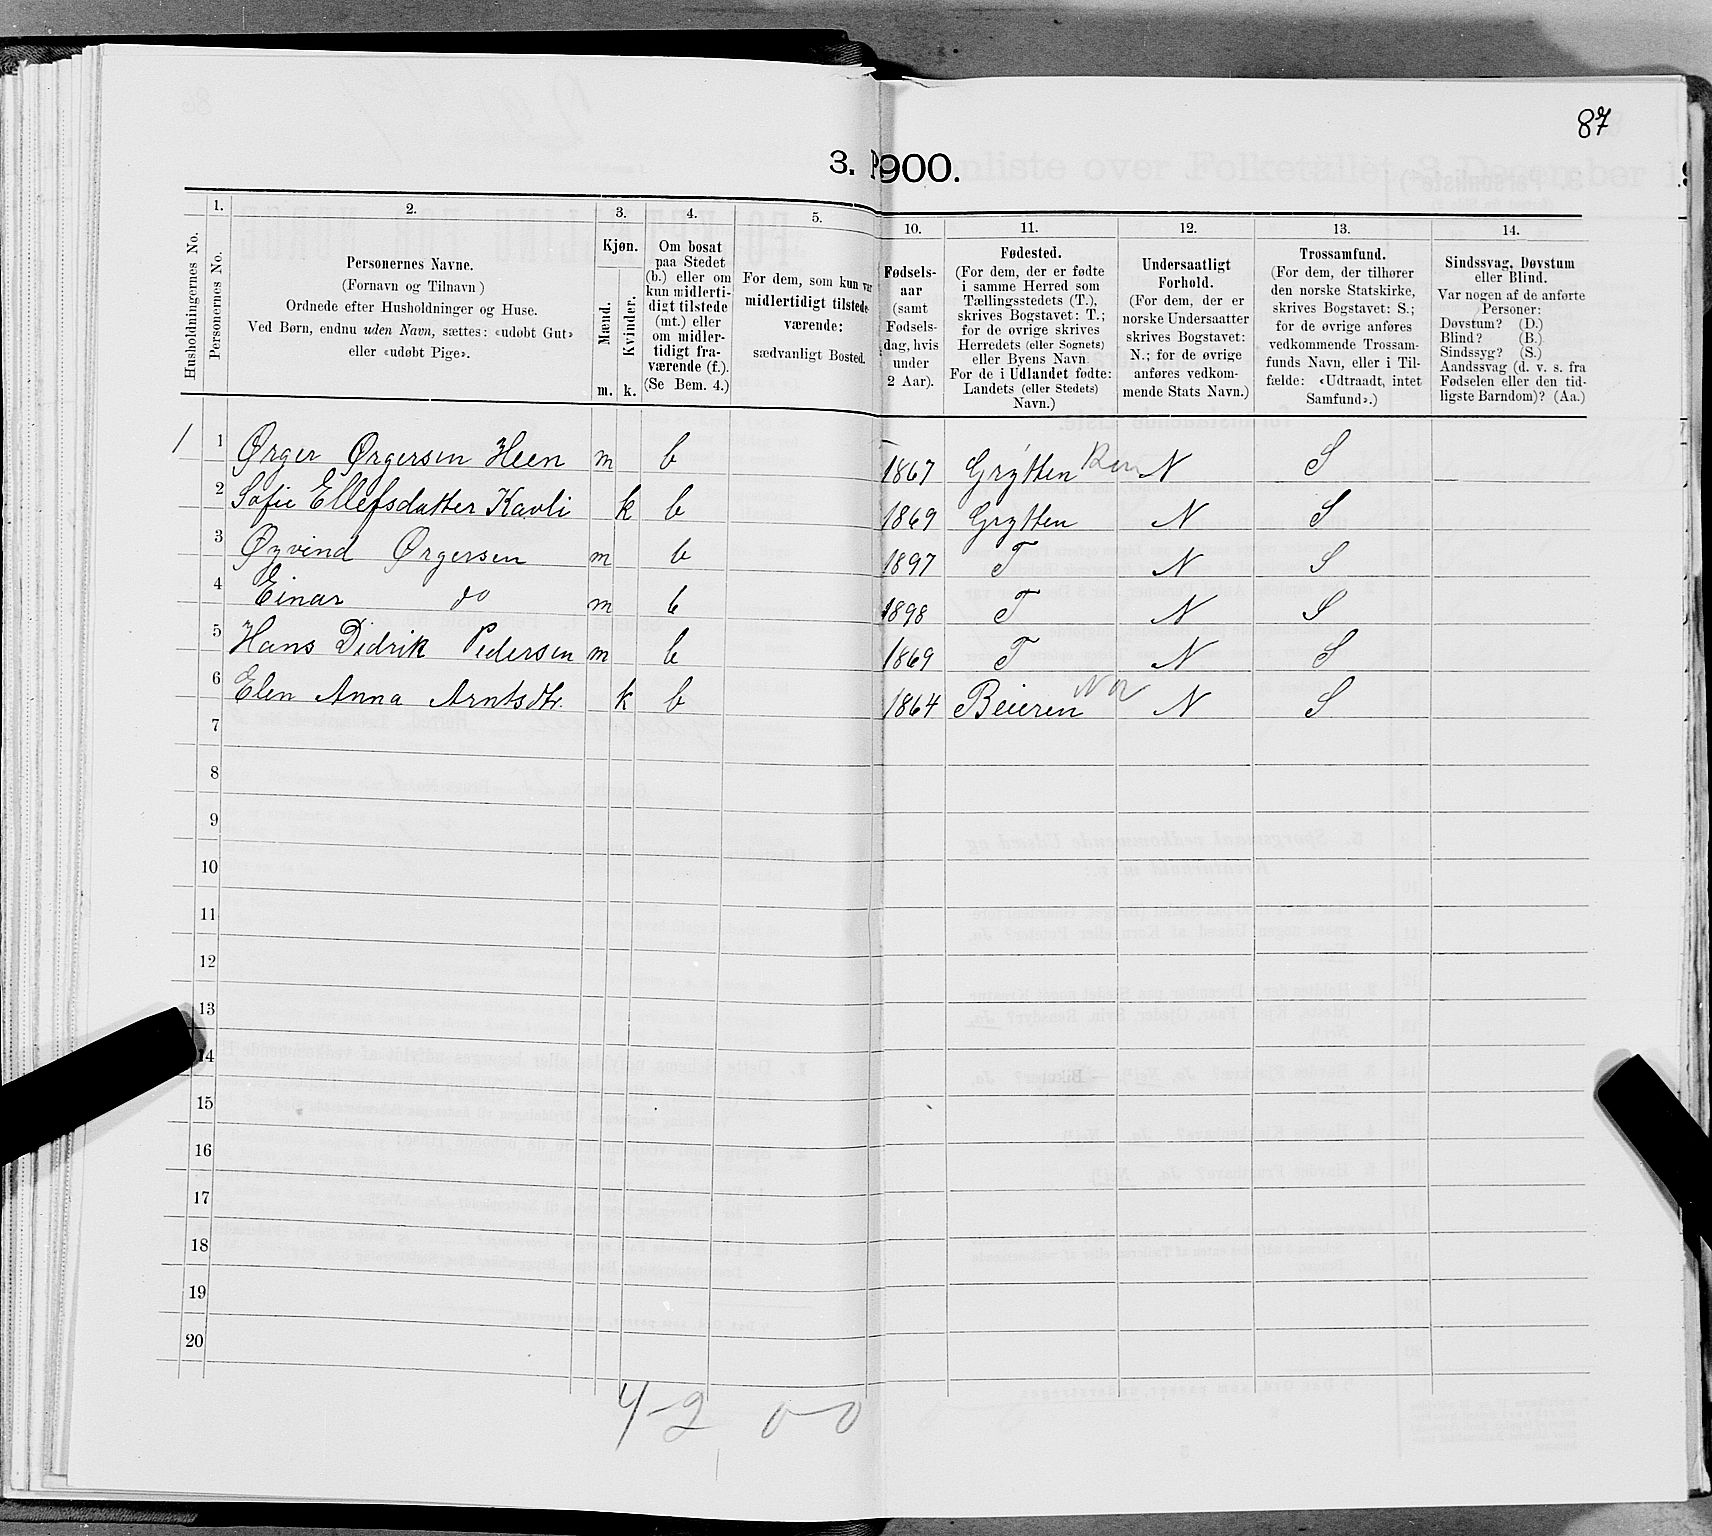 87
3. P900.
Husholdningernes No.
1.
Personernes No.
2.
Personernes Navne.
(Fornavn og Tilnavn)
Ordnede efter Husholdninger og Huse.
Ved Børn, endnu uden Navn, sættes: «udøbt Gut»
eller «udøbt Pige».
3.
Kjøn.
Mænd.
Kvinder.
m. k.
4.
Om bosat
paa Stedet
(b.) eller om
kun midlerti-
digt tilstede
(mt.) eller
om midler-
tidigt fra-
værende (f.).
(Se Bem. 4.)
5.
For dem, som kun var
midlertidigt tilstede-
værende:
sædvanligt Bosted.
10.
Fødsels-
aar
(samt
Fødsels-
dag, hvis
under
2 Aar).
11.
Fødested.
(For dem, der er fødte
i samme Herred som
Tællingsstedets (T.),
skrives Bogstavet: T.;
for de øvrige skrives
Herredets (eller Sognets)
eller Byens Navn.
For de i Udlandet fødte:
Landets (eller Stedets)
Navn.)
12.
Undersaatligt
Forhold.
(For dem, der er
norske Undersaatter
skrives Bogstavet:
N.; for de øvrige
anføres vedkom-
mende Stats Navn.)
13.
Trossamfund.
(For dem, der tilhører
den norske Statskirke,
skrives Bogstavet: S.;
for de øvrige anføres
vedkommende Trossam-
funds Navn, eller i Til-
fælde: «Udtraadt, intet
Samfund».)
14.
Sindssvag, Døvstum
eller Blind.
Var nogen af de anførte
Personer:
Døvstum? (D.)
Blind? (B.)
Sindssyg? (S.)
Aandssvag (d. v. s. fra
Fødselen eller den tid-
ligste Barndom)? (Aa.)
1 1 Ørger Ørgersen Heen m b 1867 Grytten Rom N S
2 Sofie Ellefsdatter Kavli k b 1869 Grytten N S
3 Øyvind Ørgersen m b 1897 T N S
4 Einar do m b 1898 T N S
5 Hans Didrik Pedersen m b 1869 T N S
6 Elen Anna Arntsdtr. k b 1864 Beieren No N S
7
8
9
10
11
12
13
14
15
16
17
18
19
20
4-2 0-0